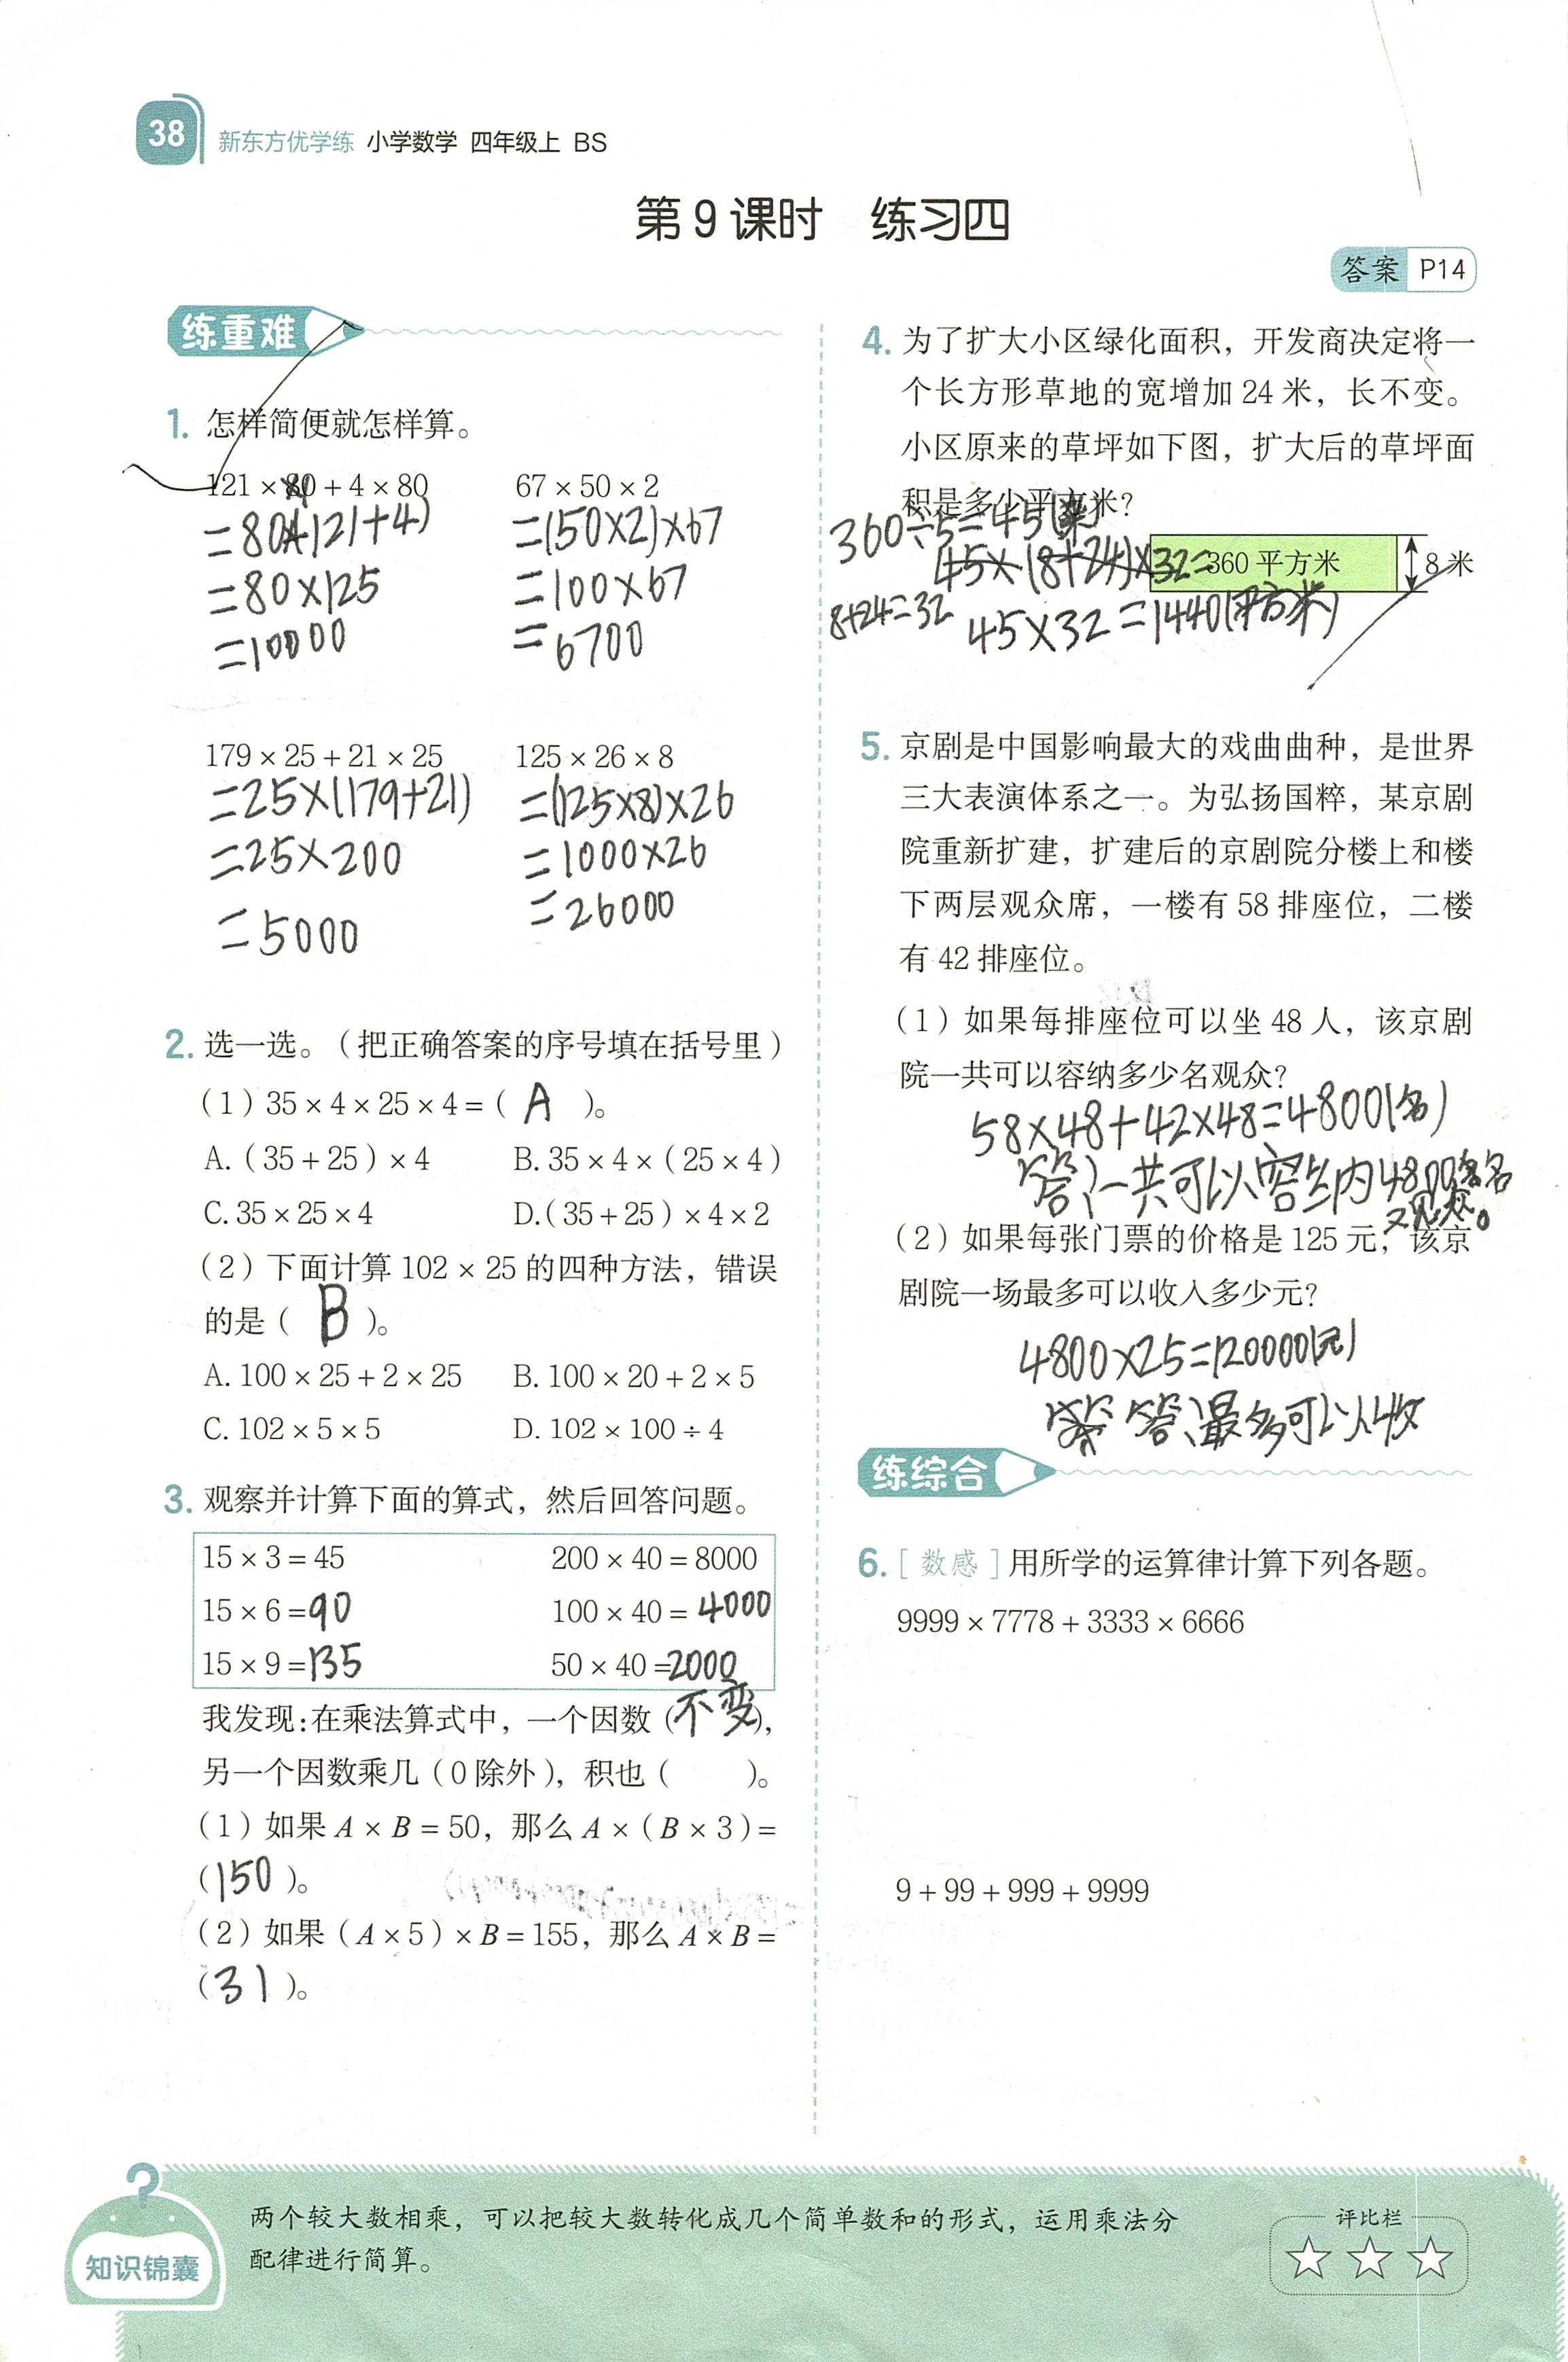 38
新东方优学练 小学数学 四年级上 BS
第9课时 练习四
答案 P14
练重难
1. 怎样简便就怎样算。
121×80+4×80
=80×(121+4)
=80×125
=10000
67×50×2
=(50×2)×67
=100×67
=6700
179×25+21×25
=25×(179+21)
=25×200
=5000
125×26×8
=(125×8)×26
=1000×26
=26000
2. 选一选。(把正确答案的序号填在括号里)
(1) 35×4×25×4=( A )。
A.(35+25)×4 B.35×4×(25×4)
C.35×25×4 D.(35+25)×4×2
(2) 下面计算 102×25 的四种方法，错误
的是( B )。
A.100×25+2×25 B.100×20+2×5
C.102×5×5 D.102×100÷4
3. 观察并计算下面的算式，然后回答问题。
15×3=45 200×40=8000
15×6=90 100×40=4000
15×9=135 50×40=2000
我发现:在乘法算式中，一个因数(不变)，
另一个因数乘几(0除外)，积也( )。
(1) 如果 A×B=50，那么 A×(B×3)=
(150)。
(2) 如果(A×5)×B=155，那么 A×B=
(31)。
4. 为了扩大小区绿化面积，开发商决定将一
个长方形草地的宽增加 24 米，长不变。
小区原来的草坪如下图，扩大后的草坪面
积是多少平方米?
360÷5=45(米)
45×(8+24)×32=
360 平方米
8 米
8+24=32
45×32=1440(平方米)
5. 京剧是中国影响最大的戏曲曲种，是世界
三大表演体系之一。为弘扬国粹，某京剧
院重新扩建，扩建后的京剧院分楼上和楼
下两层观众席，一楼有 58 排座位，二楼
有 42 排座位。
(1) 如果每排座位可以坐 48 人，该京剧
院一共可以容纳多少名观众?
58×48+42×48=4800(名)
答:一共可以容纳4800名
观众。
(2) 如果每张门票的价格是 125 元，该京
剧院一场最多可以收入多少元?
4800×25=120000(元)
答:最多可以收
练综合
6. [数感]用所学的运算律计算下列各题。
9999×7778+3333×6666
9+99+999+9999
知识锦囊
两个较大数相乘，可以把较大数转化成几个简单数和的形式，运用乘法分
配律进行简算。
评比栏